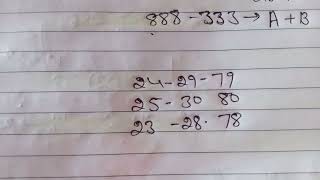 888-333→ A+B
24-29-79
25-30 80
23-28. 78